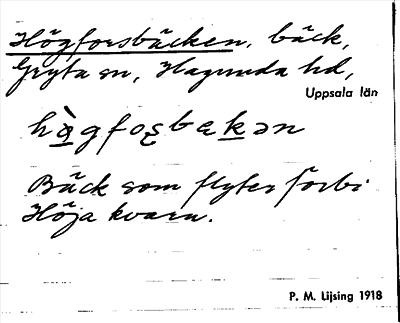 Högforsbäcken, bäck,
Gryta sn, Hagunda hd,
Uppsala län
hàgfosbækən
Bäck som flyter förbi
Höja kvarn.
P. M. Lijsing 1918